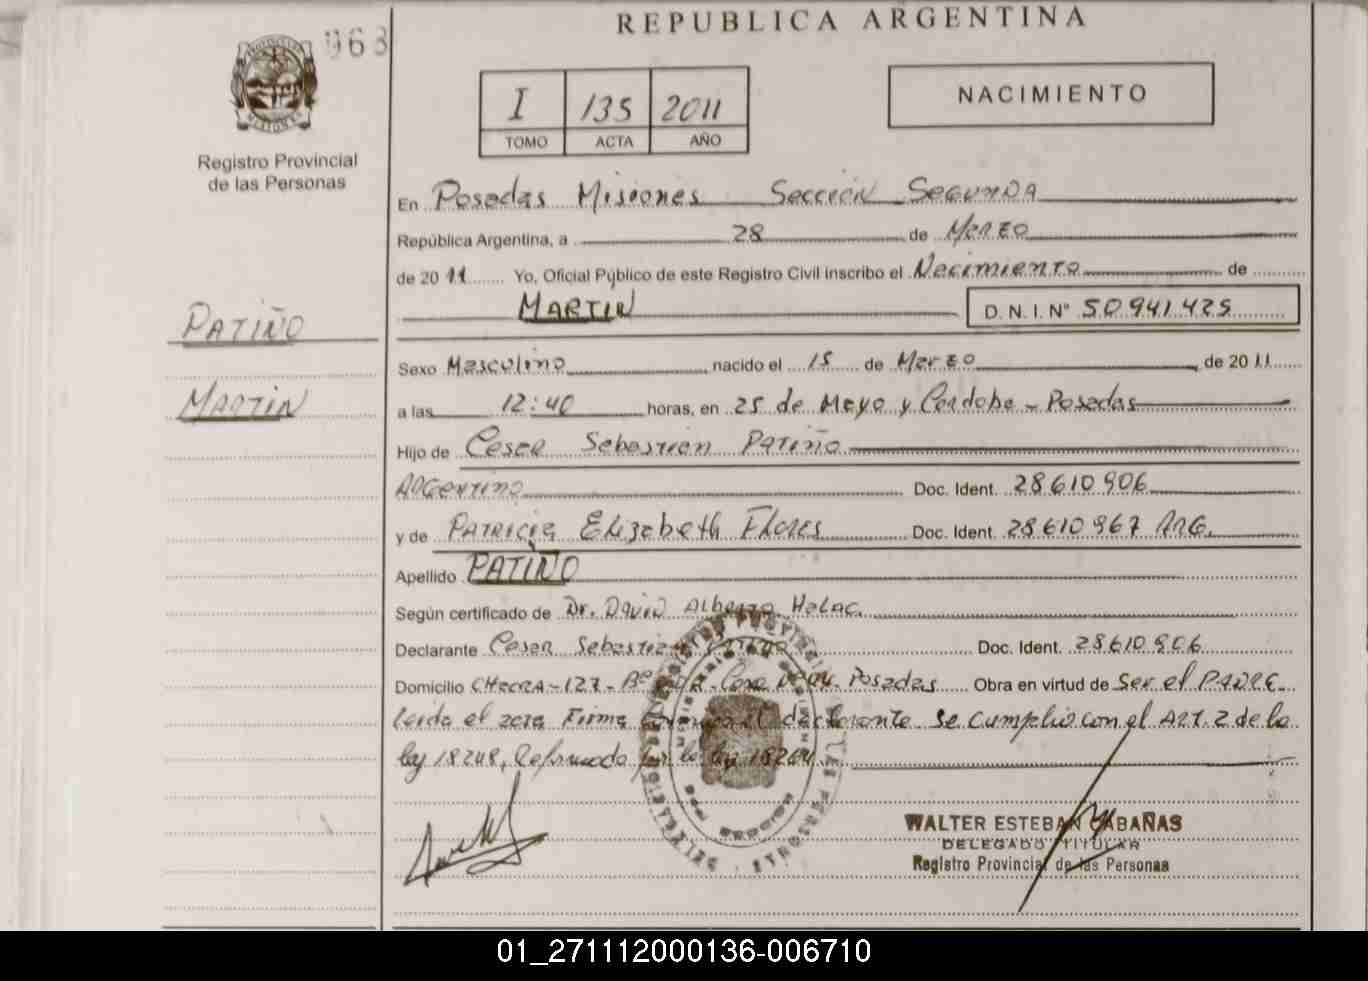 REPUBLICA ARGENTINA
963
I 135 2011
TOMO ACTA AÑO
NACIMIENTO
Registro Provincial
de las Personas
En Posadas Misiones Sección Segunda
República Argentina, a 28 de Marzo
de 2011 Yo, Oficial Público de este Registro Civil inscribo el Nacimiento de
MARTIN D. N. I. Nº 50.941.425
PATIÑO
MARTIN
Sexo Masculino nacido el 15 de Marzo de 2011
a las 12:40 horas, en 25 de Mayo y Cordoba - Posadas
Hijo de Cesar Sebastian Patiño
Argentino Doc. Ident. 28610906
y de Patricia Elizabeth Flores Doc. Ident. 28610967 ARG.
Apellido PATIÑO
Según certificado de Dr. David Alberto Halac
Declarante Cesar Sebastian Patiño Doc. Ident. 28610906
Domicilio CHACRA-127- Posadas Obra en virtud de Ser el PADRE
Leida el acta Firma el declarante se cumplio con el ART. 2 de la
ley 18248, Reformado por la ley
WALTER ESTEBAN CABAÑAS
DELEGADO TITULAR
Registro Provincial de las Personas
01_271112000136-006710